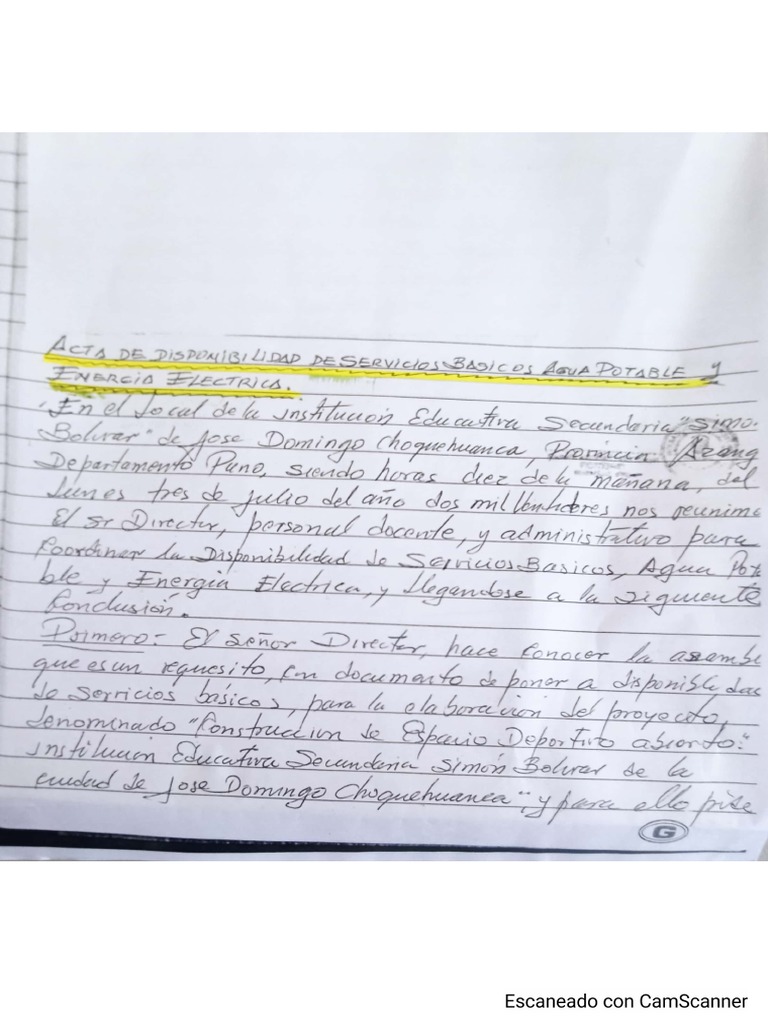 ACTA DE DISPONIBILIDAD DE SERVICIOS BASICOS AGUA POTABLE y
ENERGIA ELECTRICA.
En el Local de la institucion Educativa Secundaria "Simo
Bolivar" de Jose Domingo Choquehuanca, Provincia Azang
Departamento Puno, siendo horas diez de la mañana, del
lunes tres de julio del año dos mil nos reunimo
El Sr Director, personal docente, y administrativo para
Coordinar la Disponibilidad de Servicios Basicos, Agua Pota
ble y Energia Electrica, y llegandose a la siguiente
Conclusión.
Primero:- El Señor Director, hace conocer la asamble
que es un requesito, un documento de poner a disponible, las
de servicios básicos, para la elaboracion del proyecto,
denominado "Construccion de Espacio Deportivo abierto."
institucion Educativa Secundaria Simón Bolivar de la
ciudad de Jose Domingo Choquehuanca", y para ello pide
G
Escaneado con CamScanner